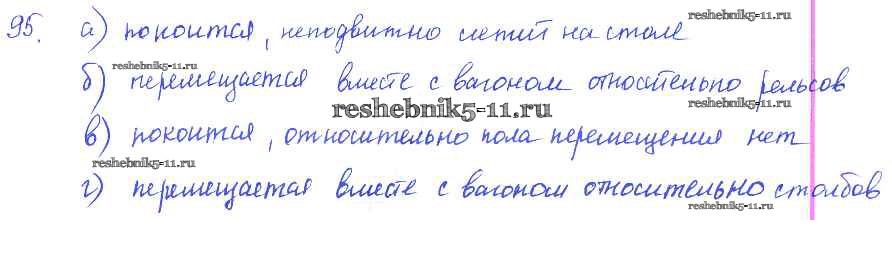 reshebnik5-11.ru
95. а) покоится, неподвижно лежит на столе
reshebnik5-11.ru
б) перемещается вместе с вагоном относительно рельсов
reshebnik5-11.ru
reshebnik5-11.ru
в) покоится, относительно пола перемещения нет
reshebnik5-11.ru
reshebnik5-11.ru
г) перемещается вместе с вагоном относительно столбов
reshebnik5-11.ru